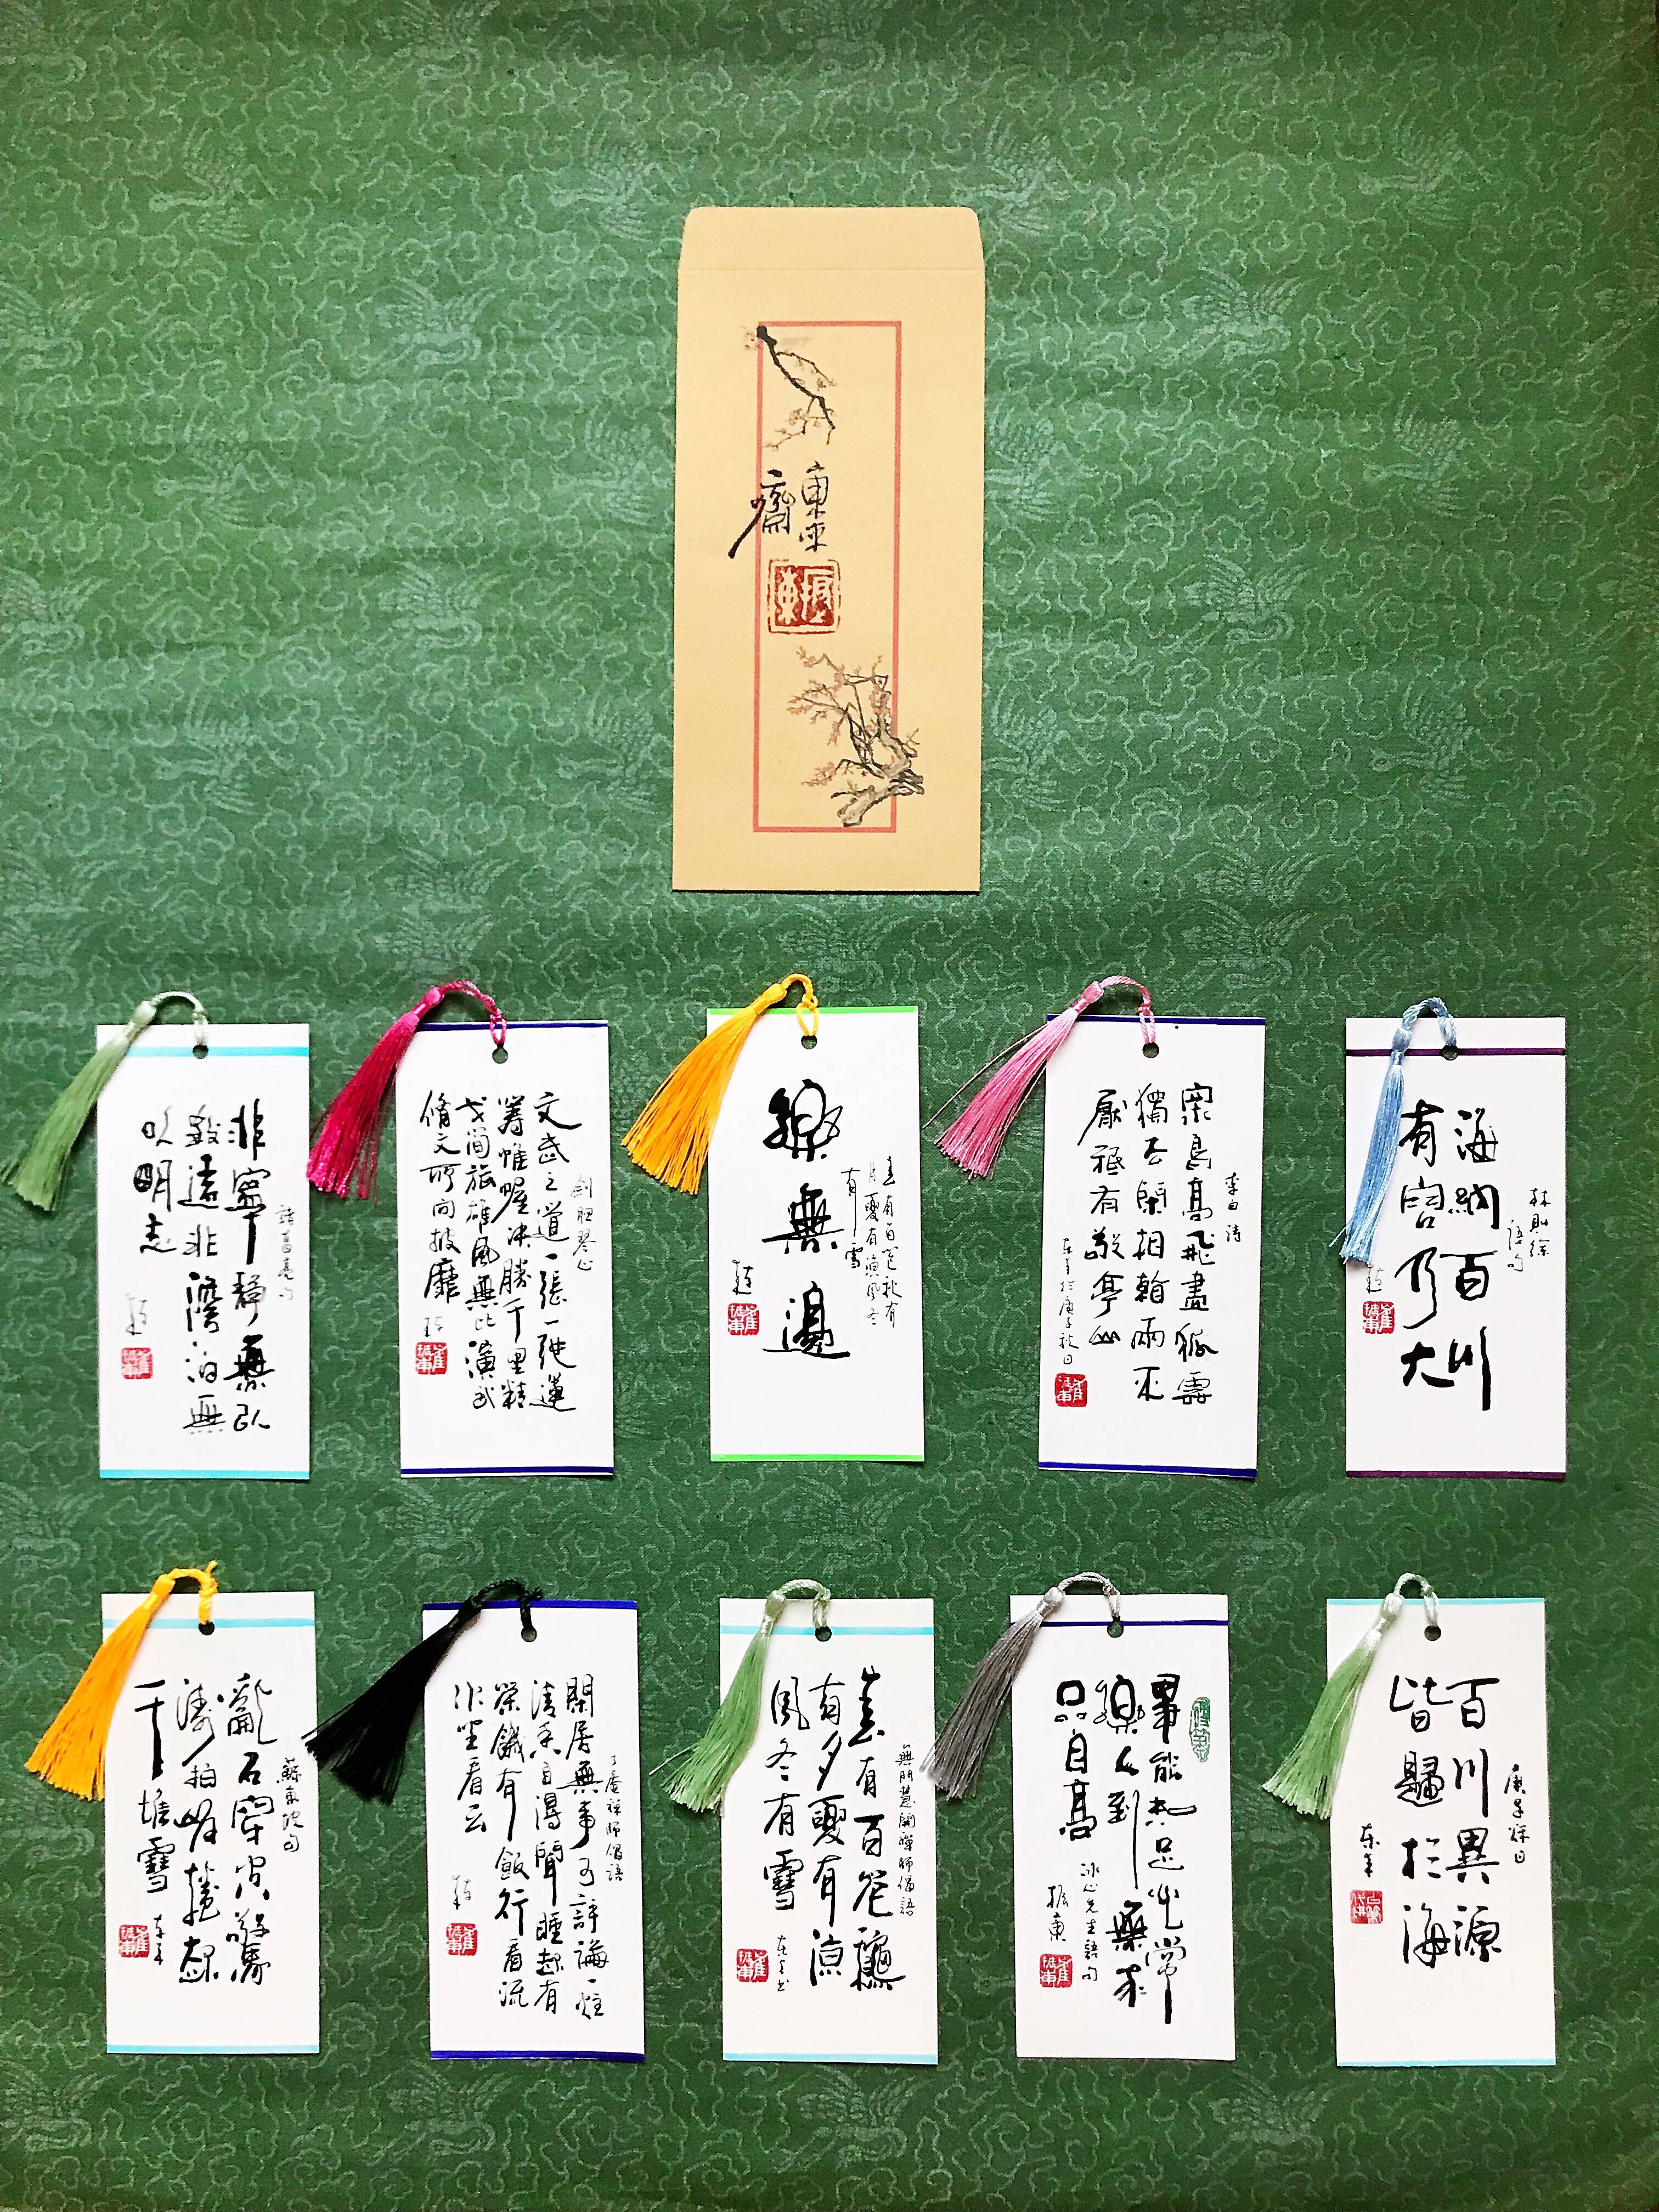 齋
諸葛亮句
非寧靜無以
致遠非澹泊無
以明志
劍胆琴心
文武之道一張一弛運
籌帷幄決勝千里精
戈簡旅雄風無比演武
脩文所向披靡
樂無邊
春有百花秋有
月夏有涼風冬
有雪
李白诗
衆鳥高飛盡孤雲
獨去閑相看兩不
厭祗有敬亭山
於庚子秋日
林則徐
語句
海納百川
有容乃大
蘇東坡句
亂石穿空驚
濤拍岸捲起
千堆雪
了庵禪師偈語
閑居無事可評論一炷
清香自得聞睡起有
茶饑有飯行看流
水坐看云
無門慧開禪師偈語
春有百花龝
有月夏有涼
風冬有雪
事能知足心常
樂人到無求
品自高
冰心先生語句
振東
庚子秌日
百川異源
皆歸於海